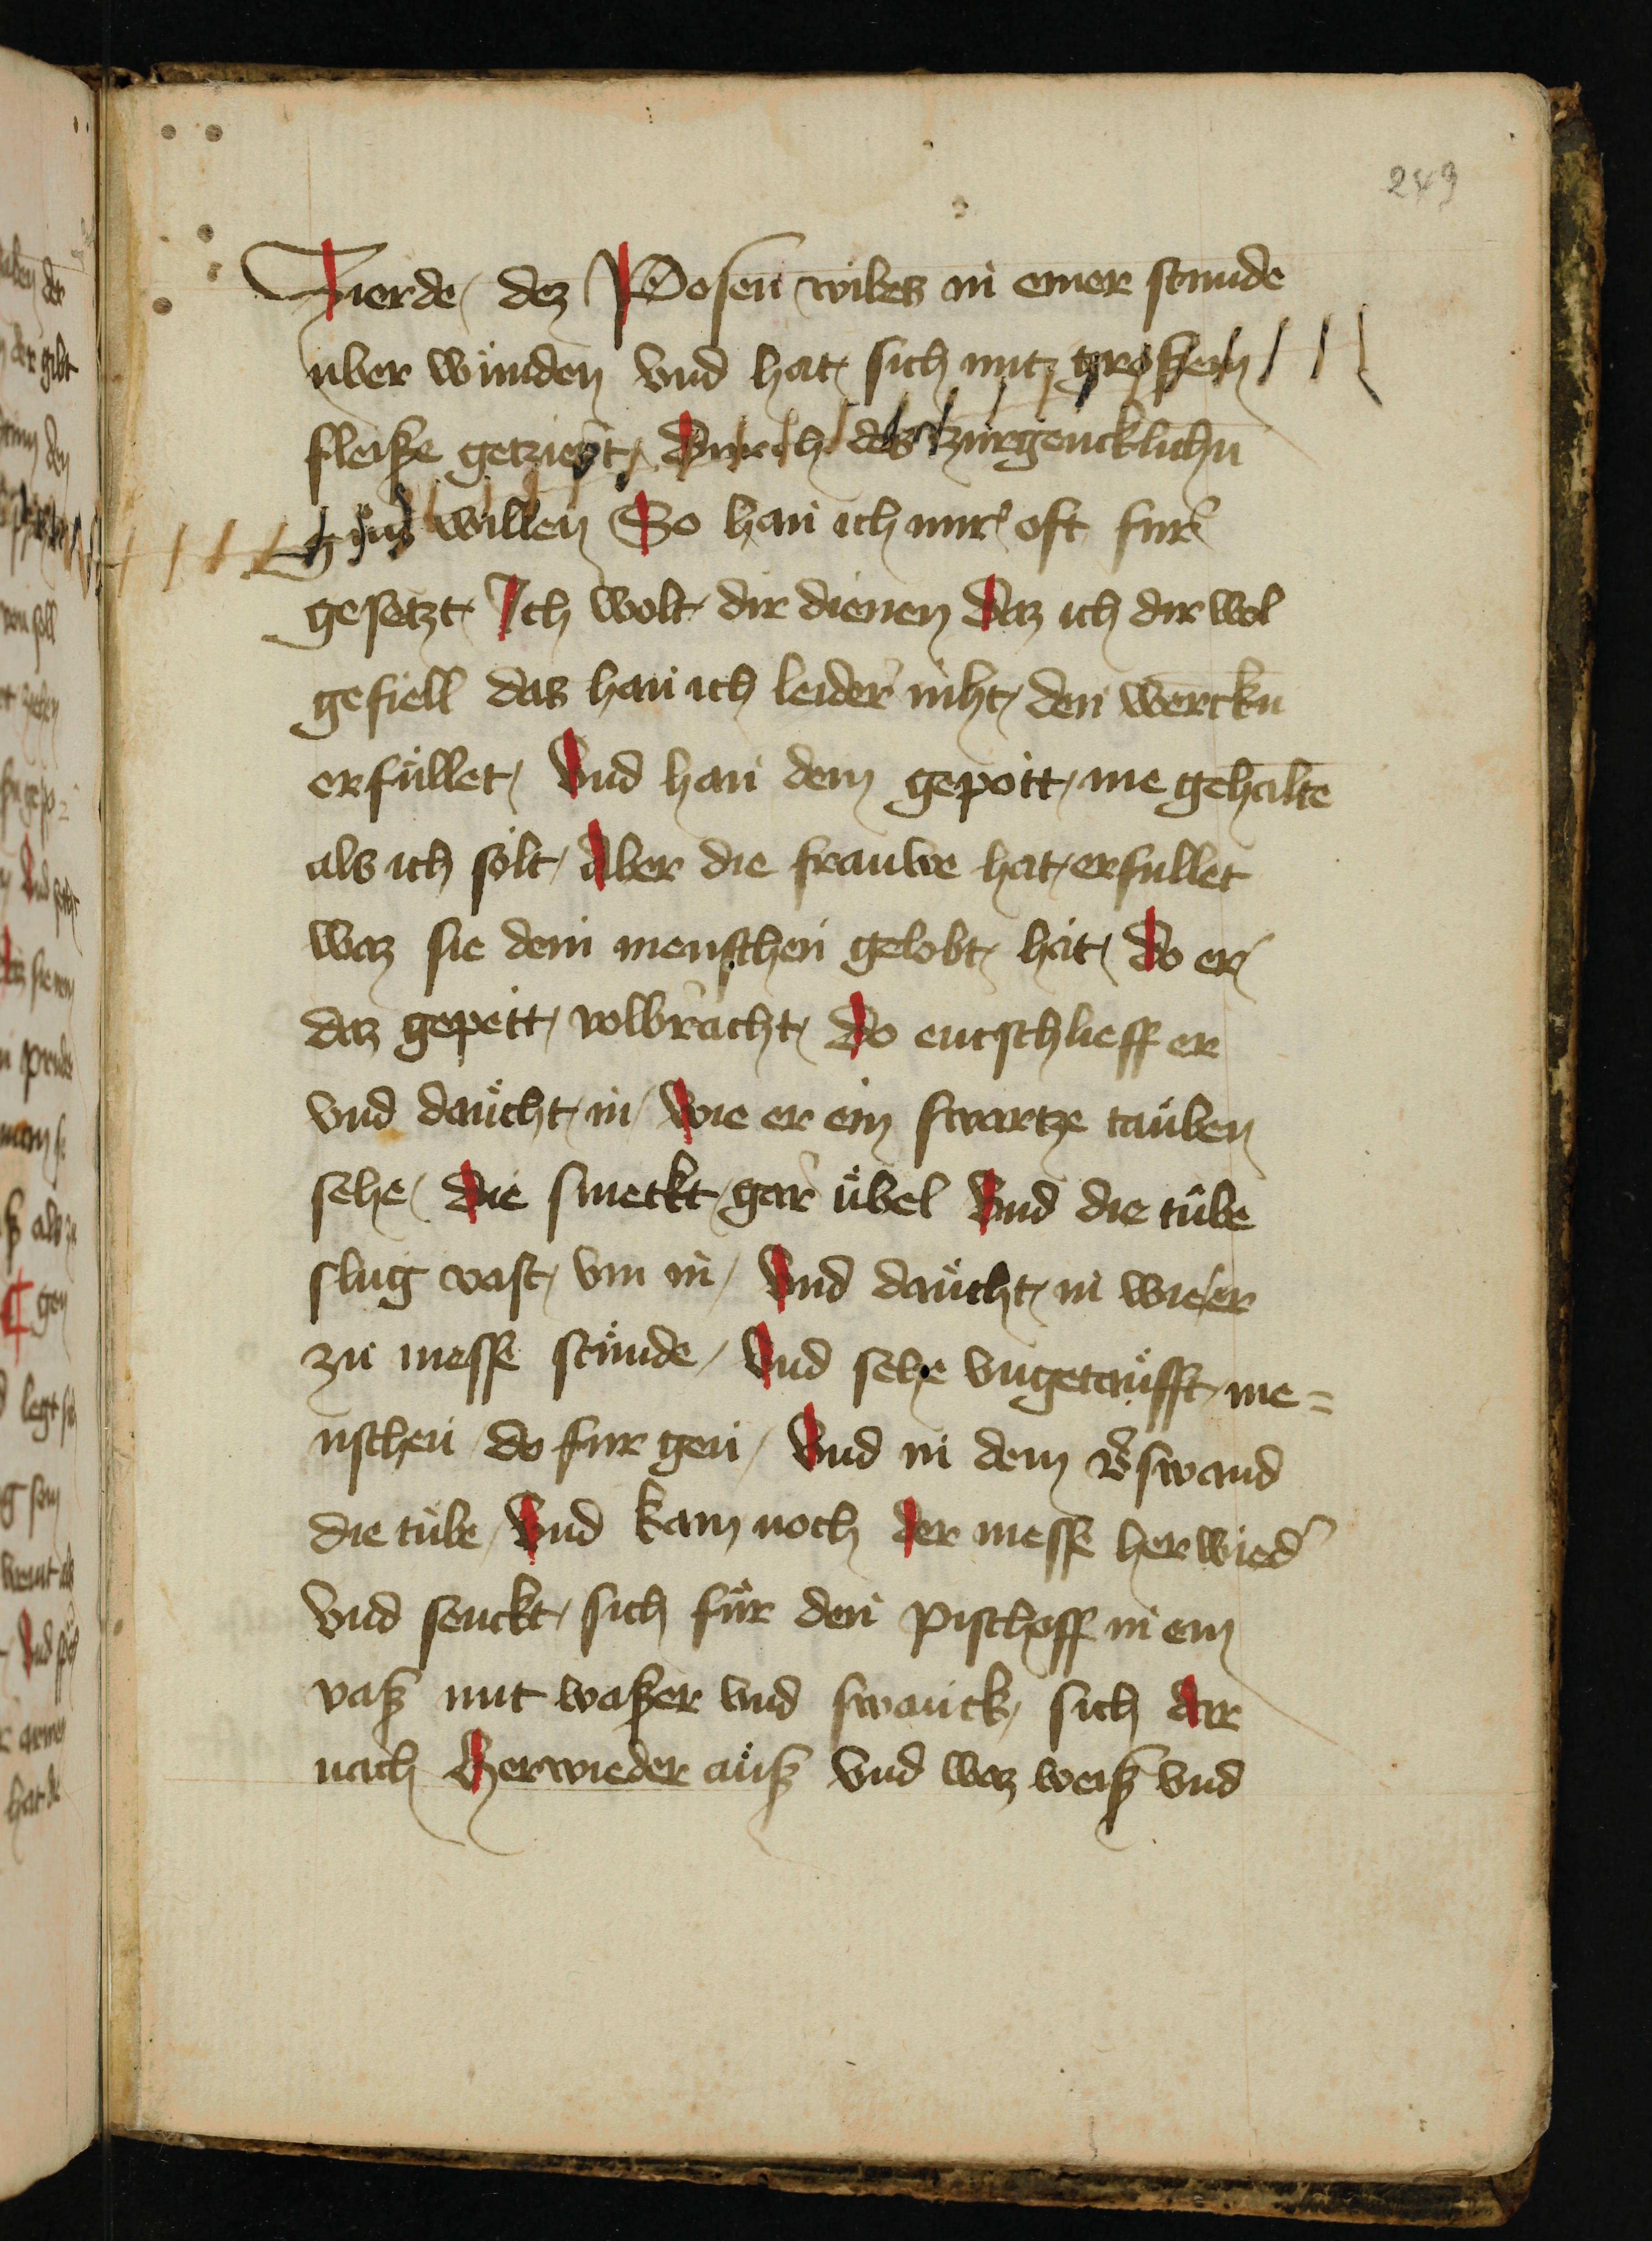 249
Zierde / dez Posen wibes in einer stunde
uber wunden vnd hat sich mit großem
fleiße getziert / Durch des zurgencklichn
willen So han ich mir oft fur
gesetzt Ich wolt dir dienen Daz ich dir wol
gefiell das han ich leider niht / den werckn
erfüllet / Vnd han dem gepott / nie gehalte
als ich solt / Aber die frauwe hat erfullet
waz sie dem menschen gelobt hat / Do er
daz gepett / volbracht / Do entschlieff er
vnd daucht in / Wie er ein swartze tauben
sehe / Die smeckt gar übel Vnd die tube
slug vast / vm in / Vnd daucht in wie er
zu messe stunde / Vnd sehe vngetaufft me=
nschen do fur gen / Vnd in dem v̉swand
die tube / Vnd kam noch der messe her wied̉
vnd senckt / sich für den pischoff in ein
vaß mit waßer vnd swanck / sich dar
nach Herwieder auß vnd waz weiß vnd